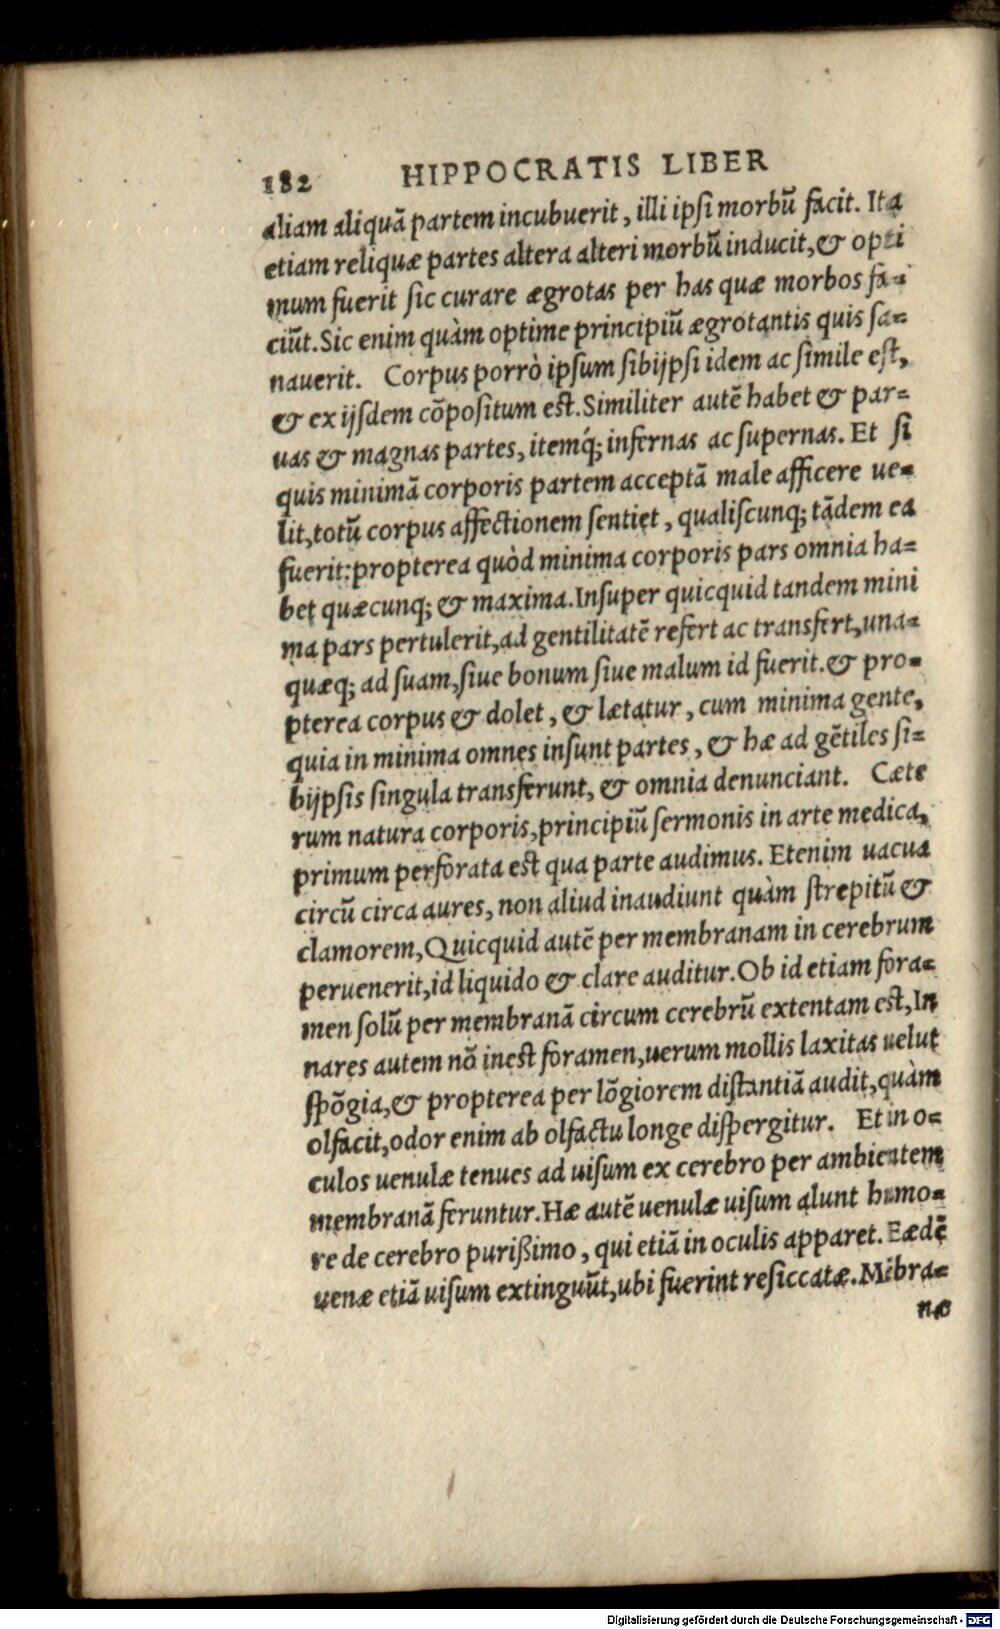 182 HIPPOCRATIS LIBER
aliam aliquã partem incubuerit, illi ipſi morbũ facit. Ita
etiam reliquæ partes altera alteri morbũ inducit, & opti
mum fuerit ſic curare ægrotas per has quæ morbos fa-
ciũt. Sic enim quàm optime principiũ ægrotantis quis ſa-
nauerit. Corpus porrò ipſum ſibijpſi idem ac ſimile eſt,
& ex ijſdem cõpoſitum eſt. Similiter autẽ habet & par-
uas & magnas partes, itemq́; infernas ac ſupernas. Et ſi
quis minimã corporis partem acceptã male afficere ue-
lit, totũ corpus affectionem ſentiet, qualiſcunq; tãdem ea
fuerit: propterea quòd minima corporis pars omnia ha-
bet quæcunq; & maxima. Inſuper quicquid tandem mini
ma pars pertulerit, ad gentilitatẽ refert ac transfert, una-
quæq; ad ſuam, ſiue bonum ſiue malum id fuerit. & pro-
pterea corpus & dolet, & lætatur, cum minima gente,
quia in minima omnes inſunt partes, & hæ ad gẽtiles ſi-
bijpſis ſingula transferunt, & omnia denunciant. Cæte
rum natura corporis, principiũ ſermonis in arte medica,
primum perforata eſt qua parte audimus. Etenim uacua
circũ circa aures, non aliud inaudiunt quàm ſtrepitũ &
clamorem, Quicquid autẽ per membranam in cerebrum
peruenerit, id liquido & clare auditur. Ob id etiam fora-
men ſolũ per membranã circum cerebrũ extentam eſt, In
nares autem nõ ineſt foramen, uerum mollis laxitas uelut
ſpõgia, & propterea per lõgiorem diſtantiã audit, quàm
olfacit, odor enim ab olfactu longe diſpergitur. Et in o-
culos uenulæ tenues ad uiſum ex cerebro per ambientem
membranã feruntur. Hæ autẽ uenulæ uiſum alunt humo-
re de cerebro purißimo, qui etiã in oculis apparet. Eædẽ
uenæ etiã uiſum extinguũt, ubi fuerint reſiccatæ. Mẽbra-
næ
Digitalisierung gefördert durch die Deutsche Forschungsgemeinschaft - DFG